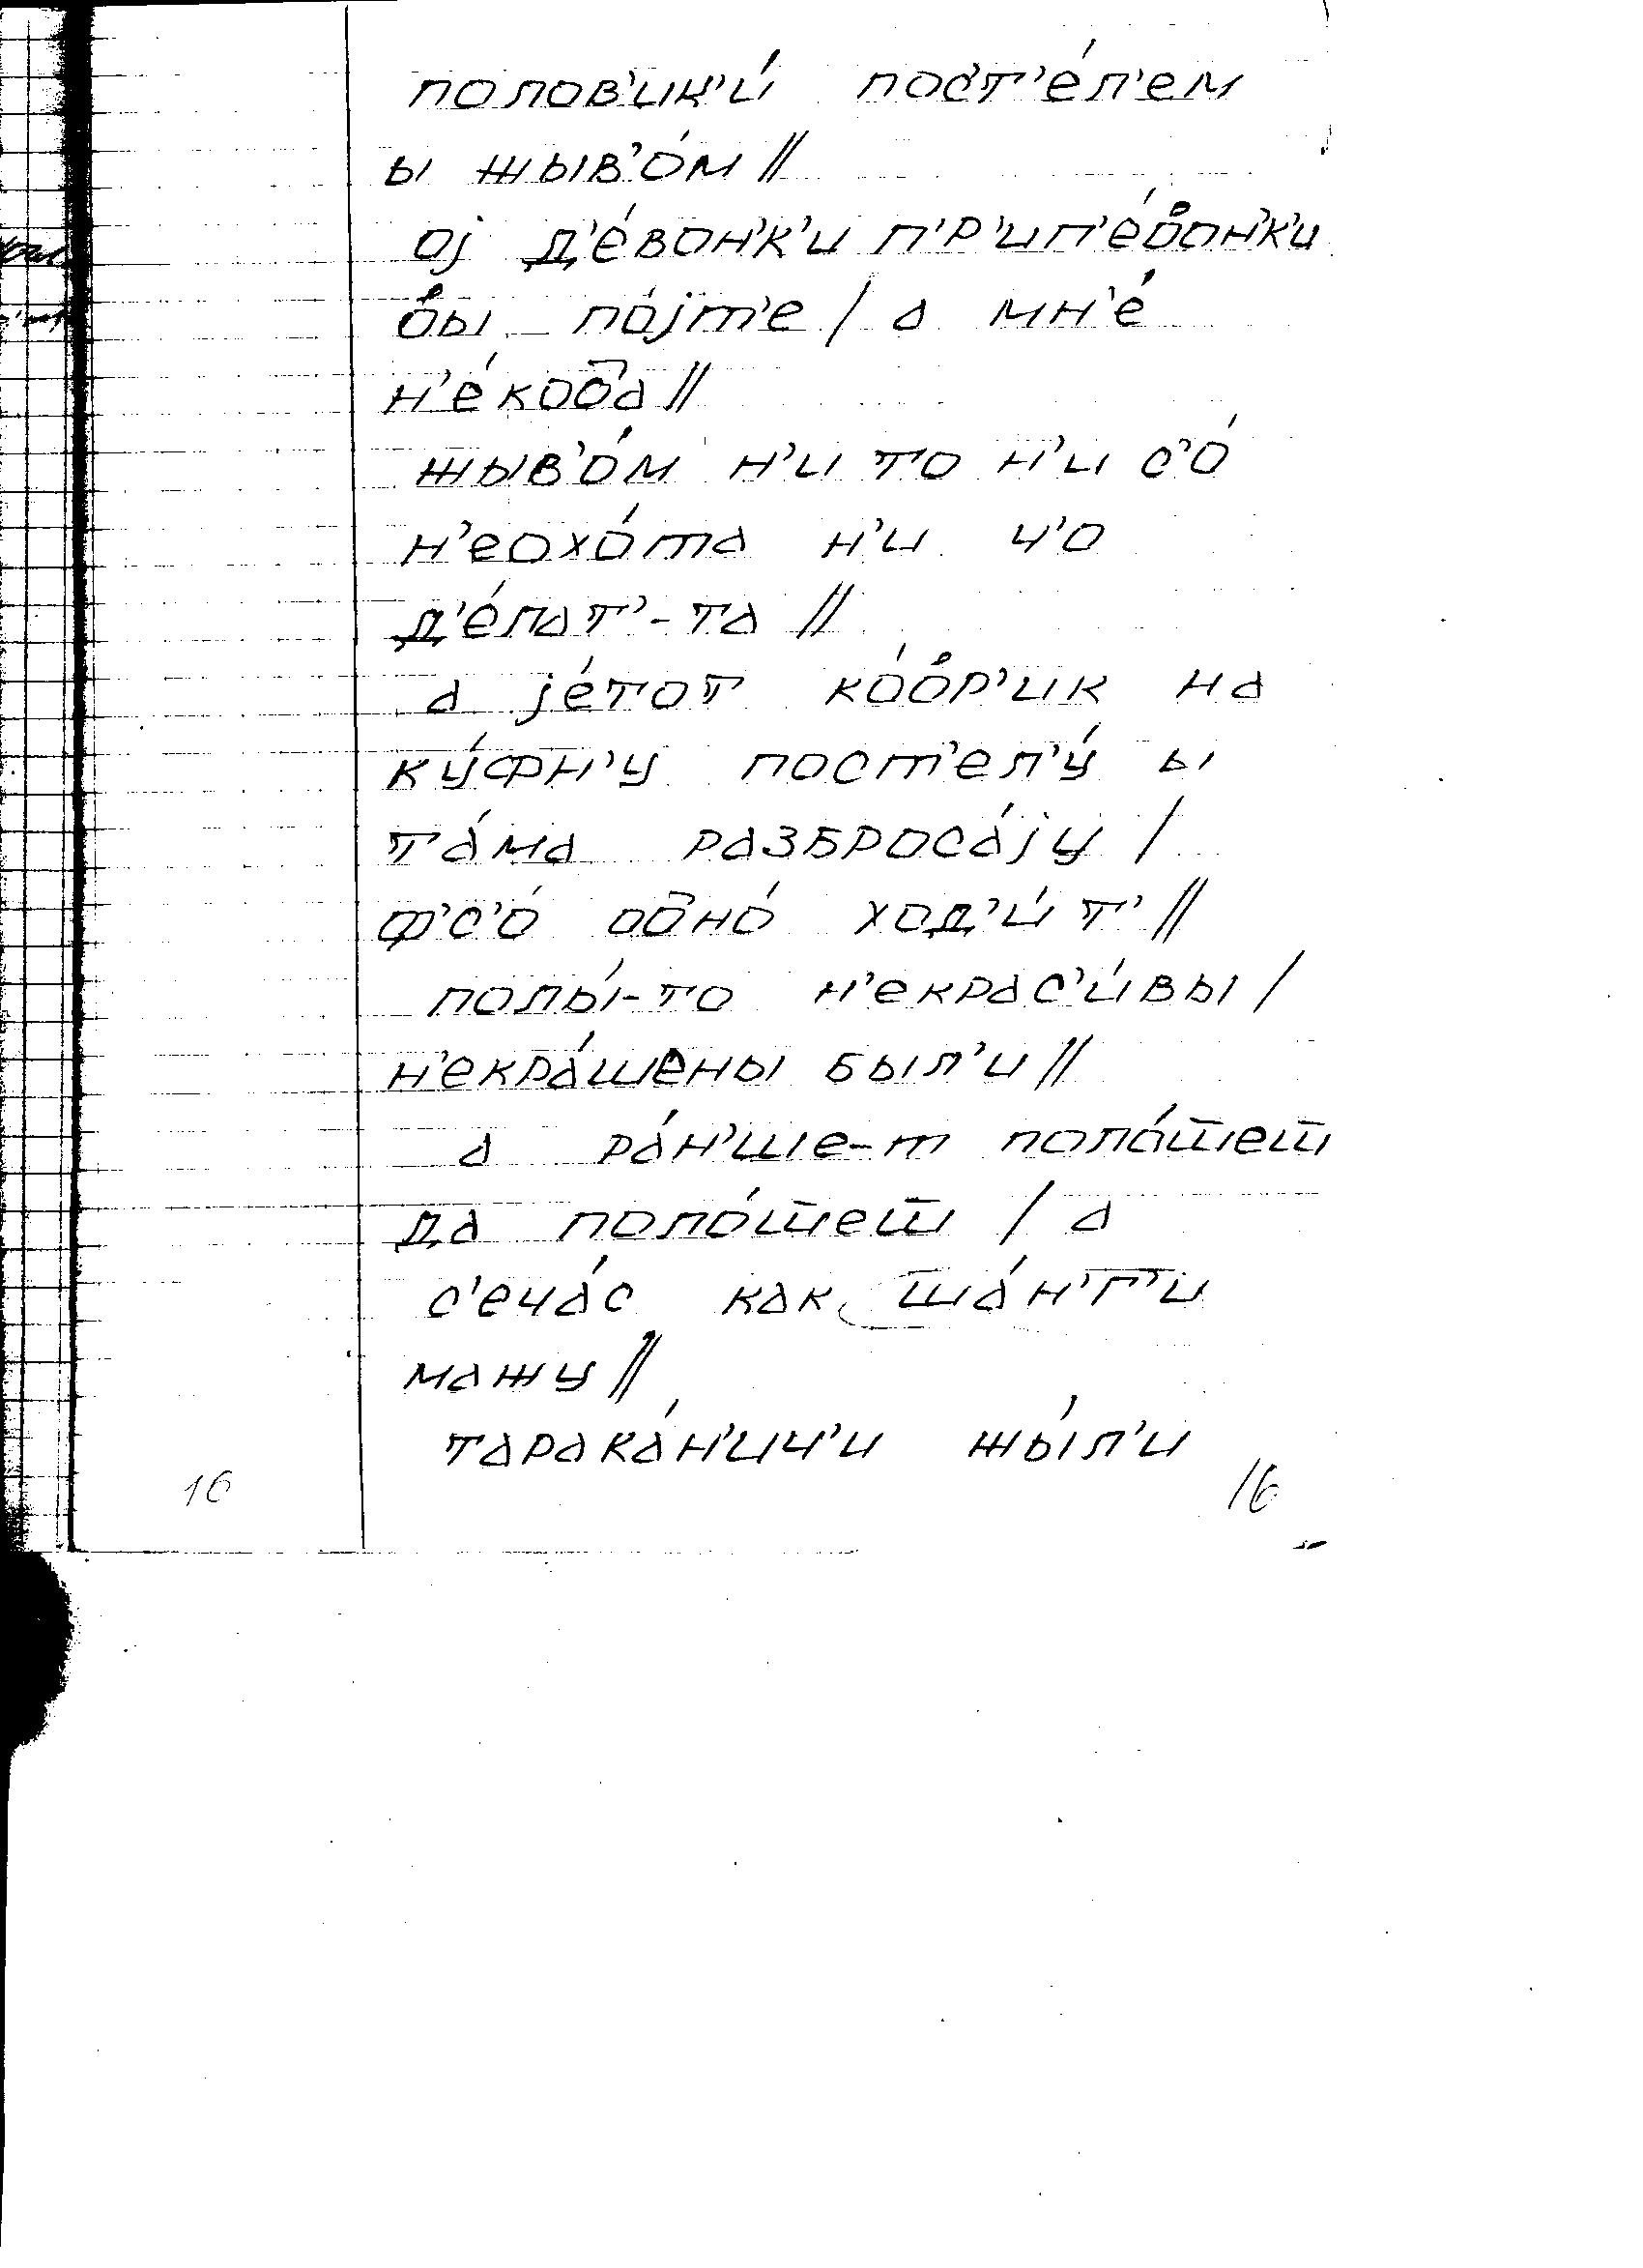 полов'ик'и́ пост'е́л'ем
ы жыв'о́м //
ој д'е́вон'к'и п'р'ип'е́вон'к'и
вы по́јт'е / а мн'е́
н'е́кода //
жыв'о́м н'и то н'и с'о́
н'еохо́та н'и ч'о
д'е́лат'-та //
а је́тот ко́вр'ик на
ку́фн'у пост'ел'у́ ы
та́ма разброса́ју /
ф'с'о́ одно́ ход'и́т' //
полы́-то н'екрас'и́вы /
н'екра́шены был'и //
а ра́н'ше-т пола́шеш
да поло́шеш / а
с'еча́с как ша́н'г'и
мажу //
тарака́н'ич'и жы́л'и
16
16